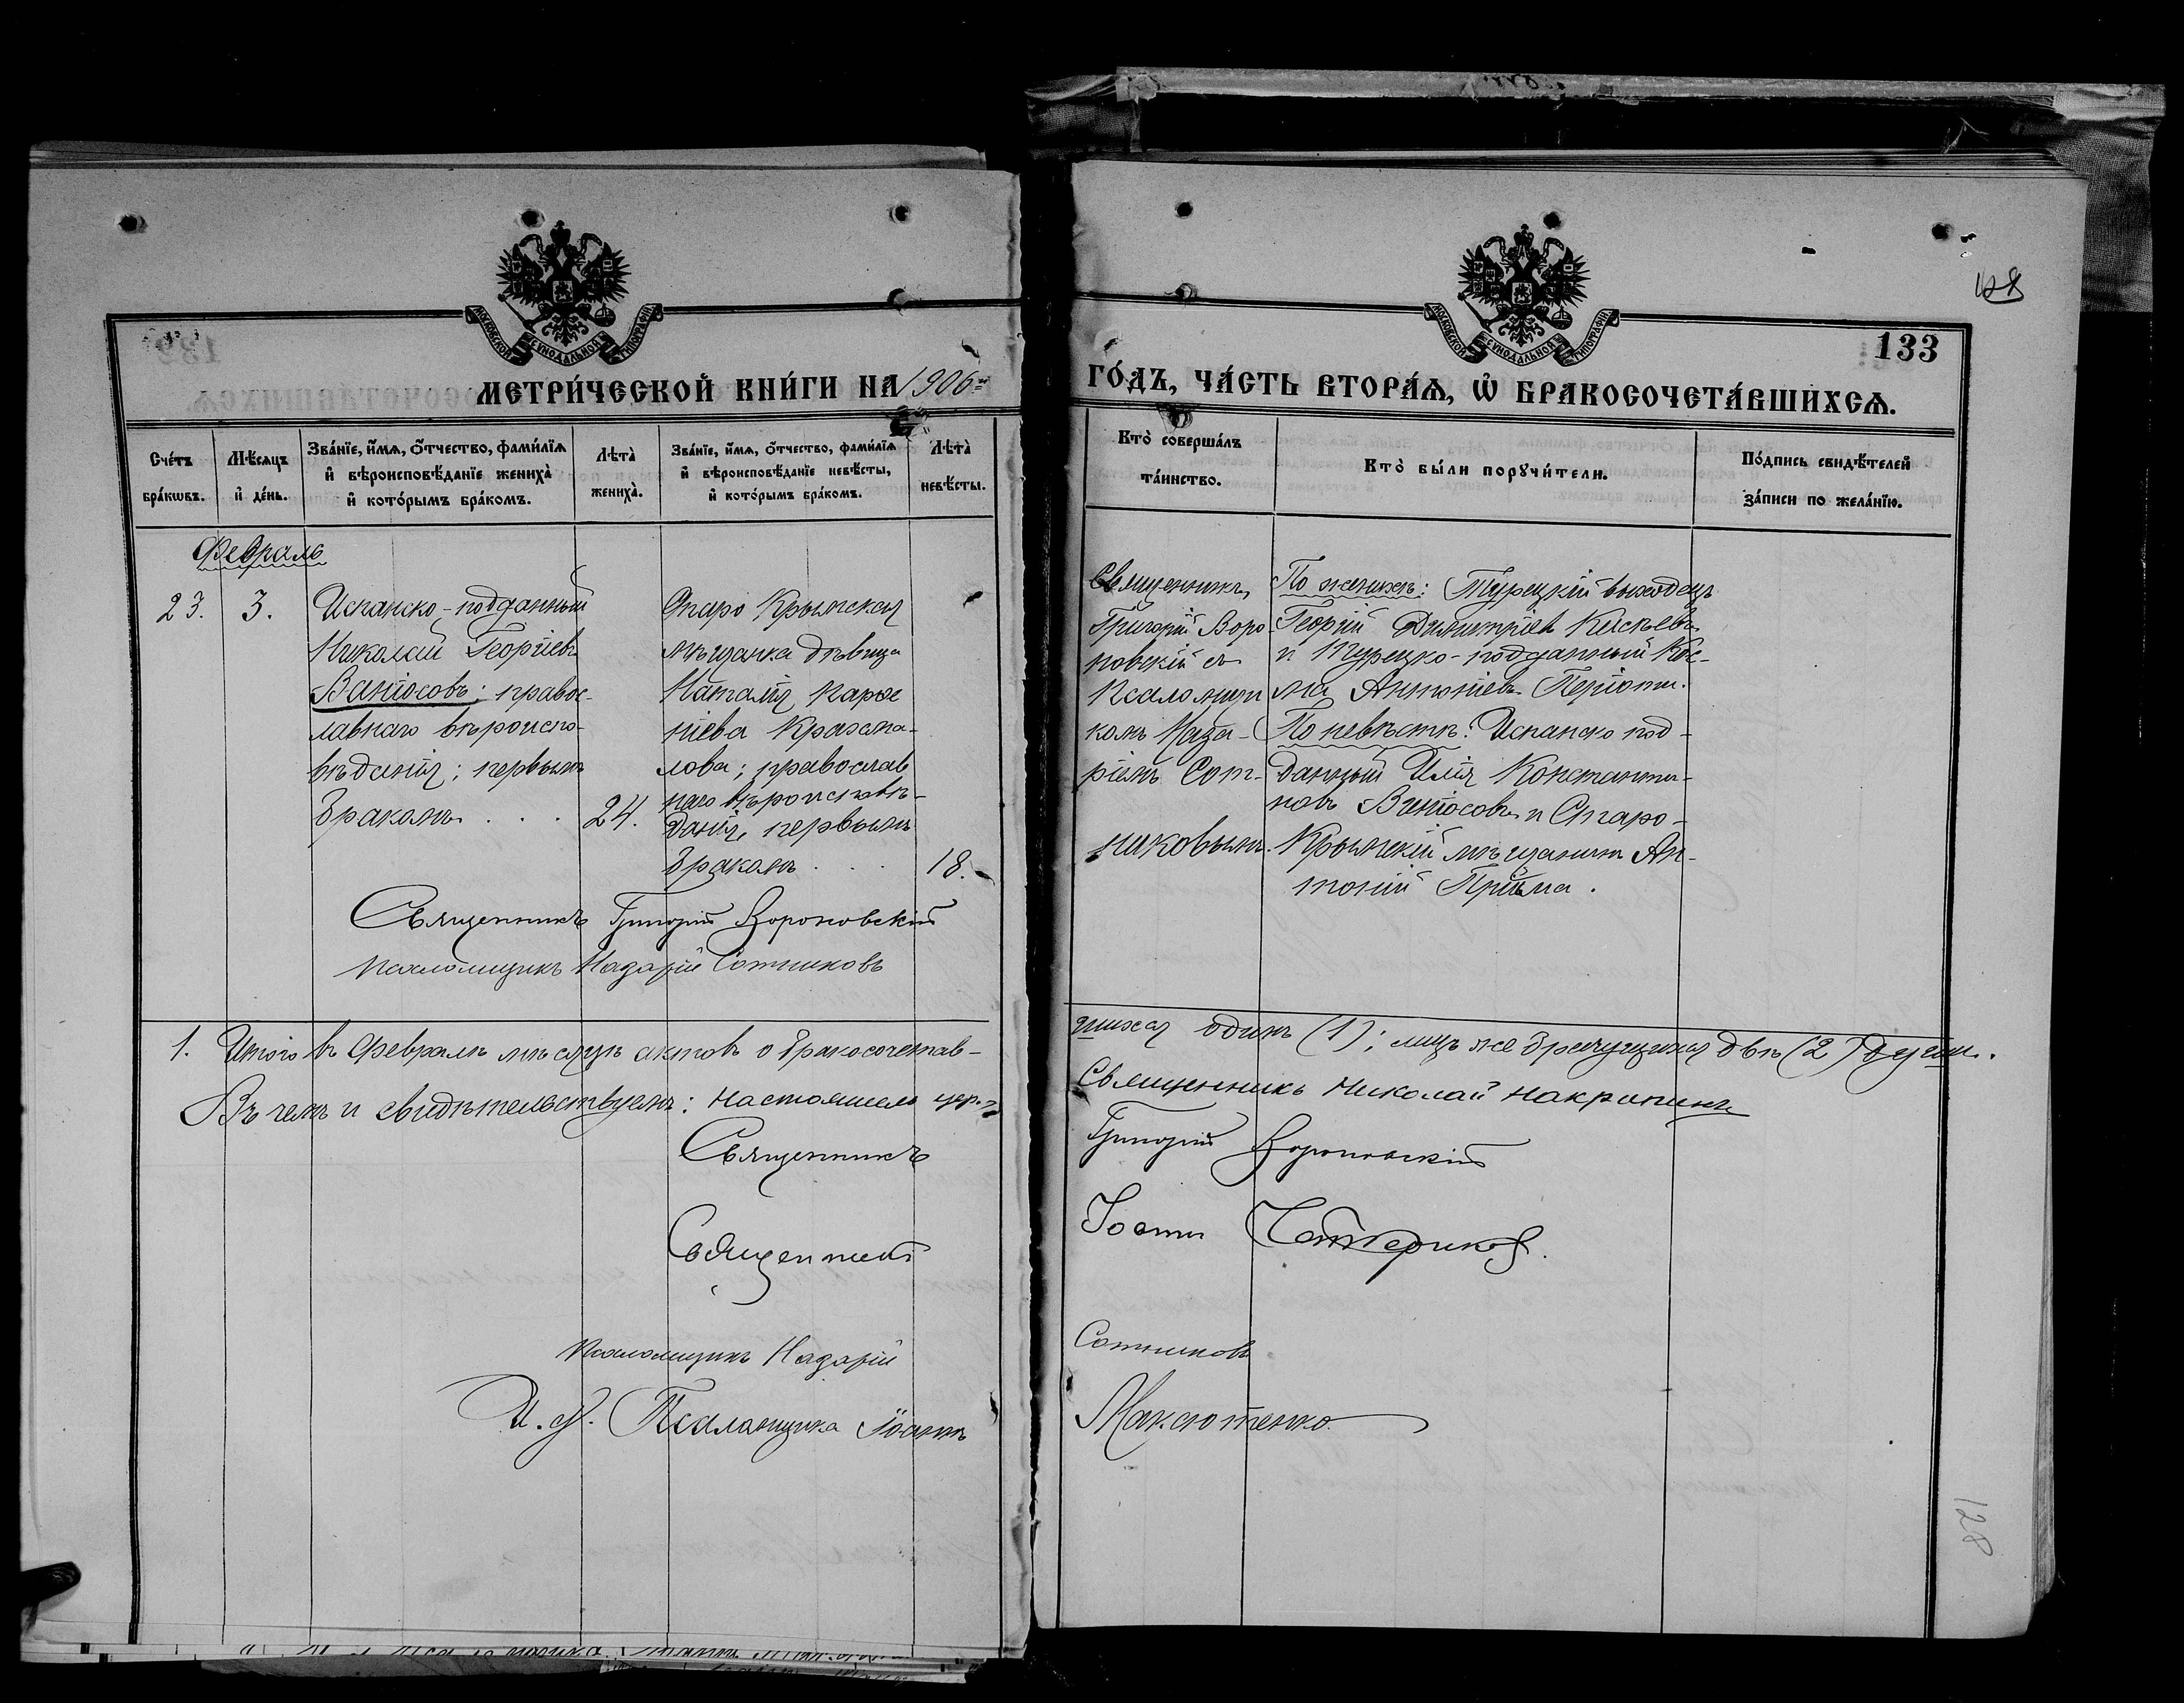 128
133
МОСКОВСКОЙ СѴНОДАЛЬНОЙ ТИПОГРАФІИ
МОСКОВСКОЙ СѴНОДАЛЬНОЙ ТИПОГРАФІИ
МЕТРИ́ЧЕСКОЙ КНИ́ГИ НА 1906й
ГО́ДЪ, ЧА́СТЬ ВТОРА́Ѧ, Ѽ БРАКОСОЧЕТА́ВШИХСѦ.
Сче́тъ бра́кѡвъ.
Мѣ́сѧцъ и҆ де́нь.
Зва́нїе, и҆́мѧ, ѻ҆́тчество, фами́лїѧ
и҆ вѣроисповѣ́данїе жениха̀
и҆ кото́рымъ бра́комъ.
Лѣта̀ жениха̀.
Зва́нїе, и҆́мѧ, ѻ҆́тчество, фами́лїѧ
и҆ вѣроисповѣ́данїе невѣ́сты,
и҆ кото́рымъ бра́комъ.
Лѣта̀ невѣ́сты.
Кто̀ соверша́лъ
та́инство.
Кто̀ бы́ли порꙋчи́тели.
По́дпись свидѣ́телей
за́писи по жела́нїю.
Февраль
23. 3.
Испанско-подданный
Николай Георгіевъ
Вапіосовъ; правос-
лавнаго вѣроиспо-
вѣданія; первымъ
бракомъ . . . 24.
Старо Крымская
мѣщанка дѣвица
Наталія Парѳе
ніева Крахма-
лова; православ
наго вѣроисповѣ-
данія, первымъ
бракомъ . . 18.
Священникъ
Григорій Воро
новскій съ
Псаломщи
комъ Наза-
ріемъ Сот-
никовымъ.
По женихѣ: Турецкій выходецъ
Георгій Димитріевъ
и Турецко-подданный Кос-
ма Антоніевъ
По невѣстѣ: Испанско под-
данный Илія Константи-
новъ и Старо-
Крымскій мѣщанинъ Ан-
тоній Пріёма.
Священникъ Григорій Вороновскій
Псаломщикъ Назарій Сотниковъ
1. Итого въ Февралѣ мѣсяцѣ актовъ о бракосочетав-
шихся одинъ (1); лицъ же брачущихся двѣ (2) души.
Въ чемъ и свидѣтельствуемъ: Настоятель цер.
Священникъ Николай Накропинъ
Священникъ Григорій Вороновскій
Священникъ Іоаннъ Четвериковъ.
Псаломщикъ Назарій Сотниковъ
И. д. Псаломщика Іоаннъ Максютенко.
128